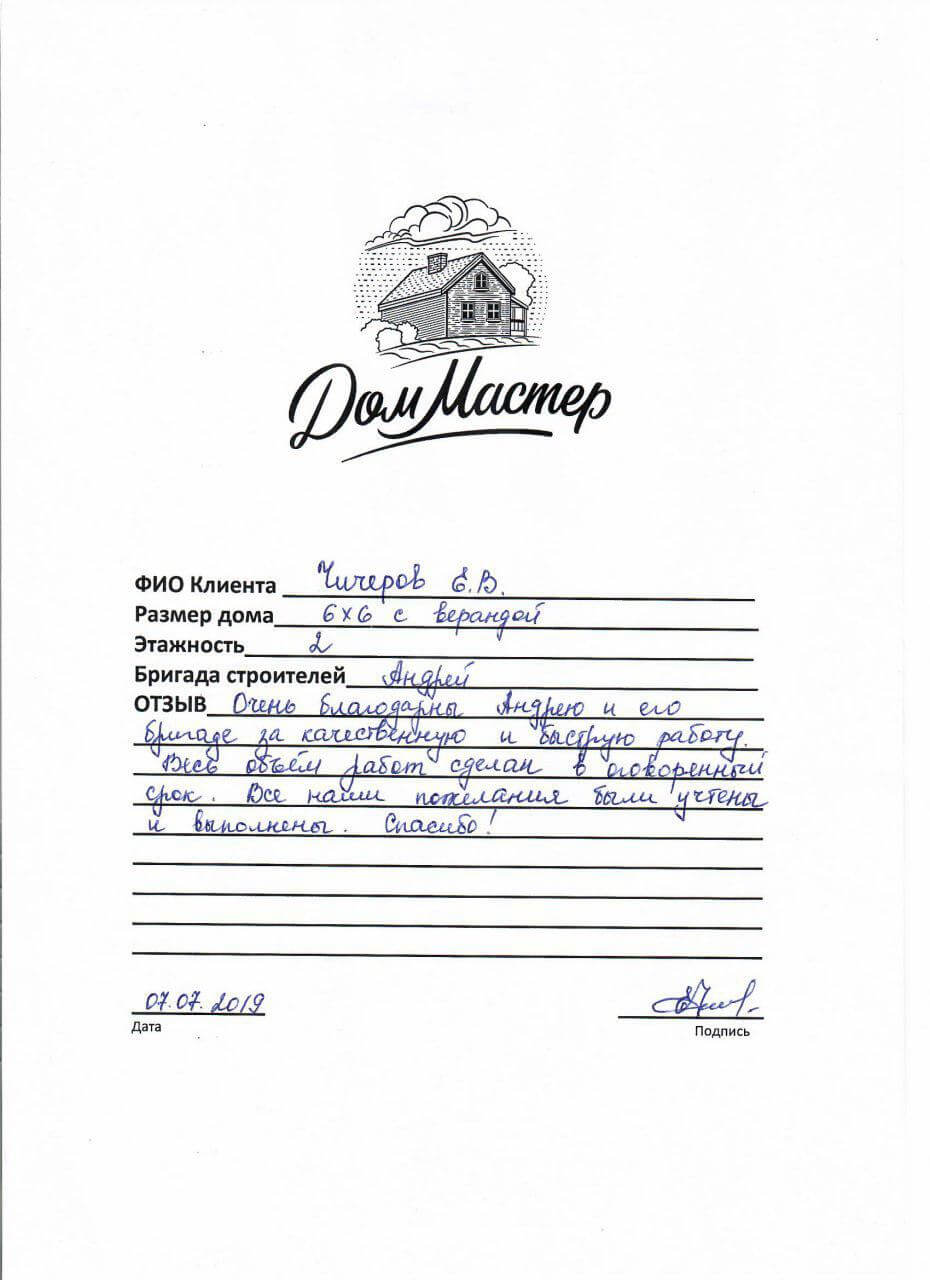 Дом Мастер
ФИО Клиента Чичеров Е.В.
Размер дома 6х6 с верандой
Этажность 2
Бригада строителей Андрей
ОТЗЫВ Очень благодарны Андрею и его
бригаде за качественную и быструю работу.
Весь объём работ сделан в оговоренный
срок. Все наши пожелания были учтены
и выполнены. Спасибо!
07.07.2019
Дата
Подпись